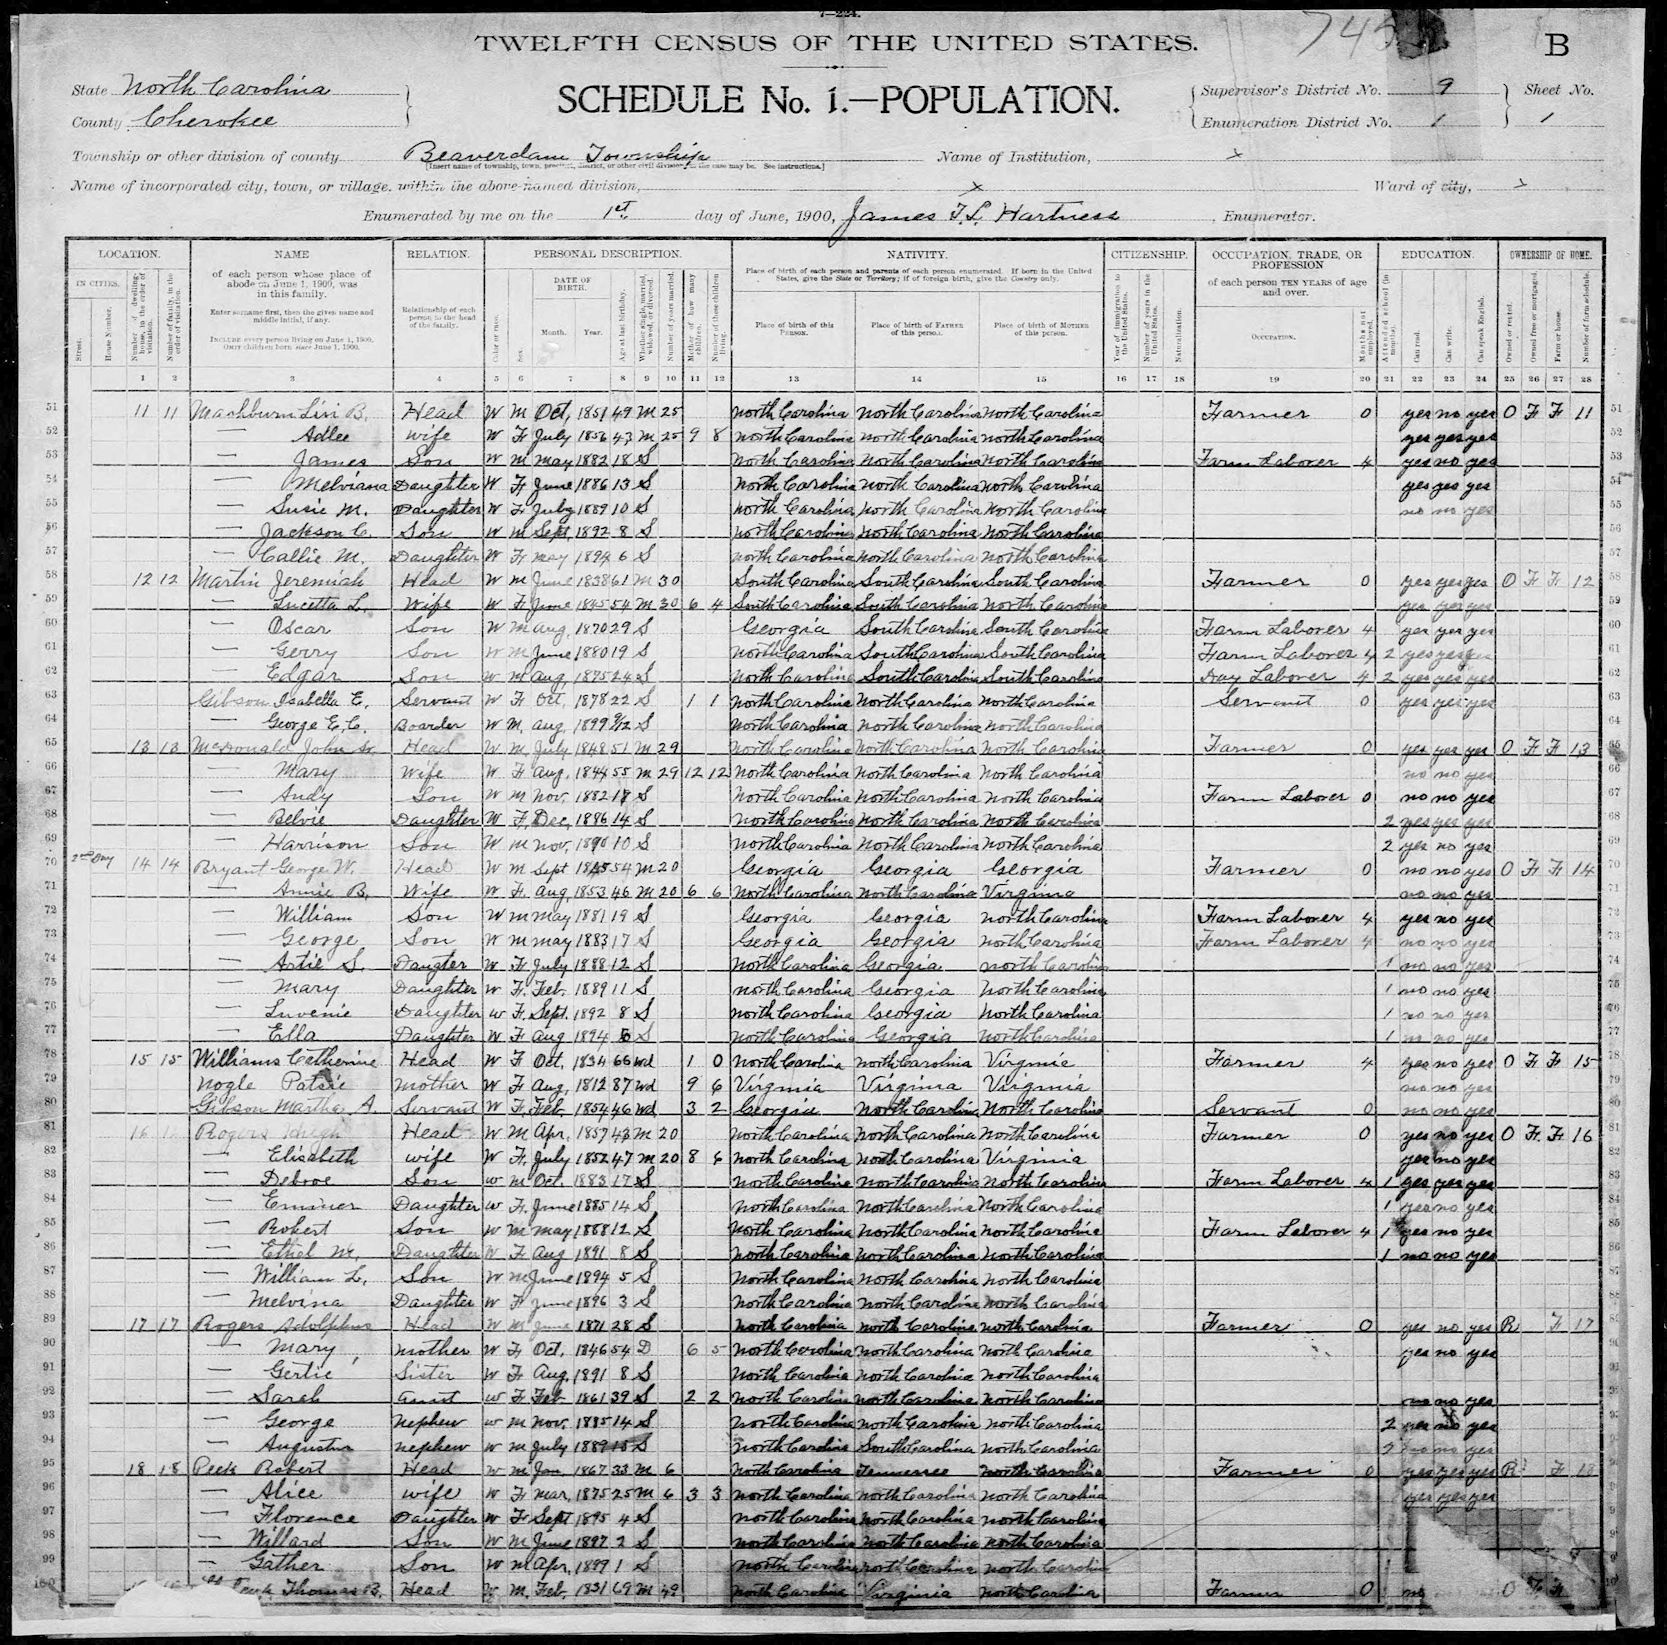 7-224.
TWELFTH CENSUS OF THE UNITED STATES.
B
State North Carolina
County Cherokee
SCHEDULE No. 1.—POPULATION.
Supervisor's District No. 9 Sheet No.
Enumeration District No. 1 1
Township or other division of county Beaverdam Township Name of Institution, x
[Insert name of township, town, precinct, district, or other civil division, as the case may be. See instructions.]
Name of incorporated city, town, or village, within the above-named division, x Ward of city, x
Enumerated by me on the 1st day of June, 1900, James F. L. Hartness, Enumerator.
LOCATION. NAME RELATION. PERSONAL DESCRIPTION. NATIVITY. CITIZENSHIP. OCCUPATION, TRADE, OR PROFESSION EDUCATION. OWNERSHIP OF HOME.
IN CITIES. Street. House Number. Number of dwelling-house, in the order of visitation. Number of family, in the order of visitation.
of each person whose place of abode on June 1, 1900, was in this family.
Enter surname first, then the given name and middle initial, if any.
INCLUDE every person living on June 1, 1900. OMIT children born since June 1, 1900.
Relationship of each person to the head of the family.
Color or race. Sex. DATE OF BIRTH. Month. Year. Age at last birthday. Whether single, married, widowed, or divorced. Number of years married. Mother of how many children. Number of these children living.
Place of birth of each person and parents of each person enumerated. If born in the United States, give the State or Territory; if of foreign birth, give the Country only.
Place of birth of this PERSON. Place of birth of FATHER of this person. Place of birth of MOTHER of this person.
Year of immigration to the United States. Number of years in the United States. Naturalization.
of each person TEN YEARS of age and over.
OCCUPATION. Months not employed. Attended school (in months). Can read. Can write. Can speak English. Owned or rented. Owned free or mortgaged. Farm or house. Number of farm schedule.
1 2 3 4 5 6 7 8 9 10 11 12 13 14 15 16 17 18 19 20 21 22 23 24 25 26 27 28
51 11 11 Mashburn Levi B. Head W M Oct, 1851 49 M 25 North Carolina North Carolina North Carolina Farmer 0 yes no yes O F F 11 51
52 — Adlee wife W F July 1856 43 M 25 9 8 North Carolina North Carolina North Carolina yes yes yes 52
53 — James Son W M May 1882 18 S North Carolina North Carolina North Carolina Farm Laborer 4 yes no yes 53
54 — Melviana Daughter W F June 1886 13 S North Carolina North Carolina North Carolina yes yes yes 54
55 — Susie M. Daughter W F July 1889 10 S North Carolina North Carolina North Carolina no no yes 55
56 — Jackson C. Son W M Sept 1892 8 S North Carolina North Carolina North Carolina 56
57 — Callie M. Daughter W F May 1894 6 S North Carolina North Carolina North Carolina 57
58 12 12 Martin Jeremiah Head W M June 1838 61 M 30 South Carolina South Carolina South Carolina Farmer 0 yes yes yes O F F 12 58
59 — Lucetta L. Wife W F June 1845 54 M 30 6 4 South Carolina South Carolina North Carolina yes yes yes 59
60 — Oscar Son W M Aug, 1870 29 S Georgia South Carolina South Carolina Farm Laborer 4 yes yes yes 60
61 — Gerry Son W M June 1880 19 S North Carolina South Carolina South Carolina Farm Laborer 4 2 yes yes yes 61
62 — Edgar Son W M Aug 1875 24 S North Carolina South Carolina South Carolina Day Laborer 4 2 yes yes yes 62
63 Gibson Isabella E. Servant W F Oct, 1878 22 S 1 1 North Carolina North Carolina North Carolina Servant 0 yes yes yes 63
64 — George E. C. Boarder W M, Aug, 1899 9/12 S North Carolina North Carolina North Carolina 64
65 13 13 McDonald John Sr. Head W M July 1848 51 M 29 North Carolina North Carolina North Carolina Farmer 0 yes yes yes O F F 13 65
66 — Mary Wife W F Aug, 1844 55 M 29 12 12 North Carolina North Carolina North Carolina no no yes 66
67 — Andy Son W M Nov, 1882 18 S North Carolina North Carolina North Carolina Farm Laborer 0 no no yes 67
68 — Belvie Daughter W F Dec, 1886 14 S North Carolina North Carolina North Carolina 2 yes yes yes 68
69 — Harrison Son W M Nov, 1890 10 S North Carolina North Carolina North Carolina 2 yes no yes 69
70 2nd Day 14 14 Bryant George W. Head W M Sept 1845 54 M 20 Georgia Georgia Georgia Farmer 0 no no yes O F F 14 70
71 — Annie B. Wife W F. Aug, 1853 46 M 20 6 6 North Carolina North Carolina Virginia no no yes 71
72 — William Son W M May 1881 19 S Georgia Georgia North Carolina Farm Laborer 4 yes no yes 72
73 — George Son W M May 1883 17 S Georgia Georgia North Carolina Farm Laborer 4 no no yes 73
74 — Artie S. Daugter W F July 1888 12 S North Carolina Georgia North Carolina 1 no no yes 74
75 — Mary Daughter W F. Feb. 1889 11 S North Carolina Georgia North Carolina 1 no no yes 75
76 — Luvenie Daughter W F. Sept. 1892 8 S North Carolina Georgia North Carolina 1 no no yes 76
77 — Ella Daughter W F Aug 1894 S North Carolina Georgia North Carolina 1 no no yes 77
78 15 15 Williams Catherine Head W F Oct, 1834 66 Wd 1 0 North Carolina North Carolina Virginia Farmer 4 yes no yes O F F 15 78
79 Nogle Patsie Mother W F Aug, 1812 87 Wd 9 6 Virginia Virginia Virginia no no yes 79
80 Gibson Martha A Servant W F. Feb 1854 46 Wd 3 2 Georgia North Carolina North Carolina Servant 0 no no yes 80
81 16 Rogers Hugh Head W M Apr, 1857 43 M 20 North Carolina North Carolina North Carolina Farmer 0 yes no yes O F. F. 16 81
82 — Elisabeth wife W F. July 1852 47 M 20 8 6 North Carolina North Carolina Virginia yes no yes 82
83 — Debroe Son W M Oct. 1883 17 S North Carolina North Carolina North Carolina Farm Laborer 4 1 yes yes yes 83
84 — Emmer Daughter W F. June 1885 14 S North Carolina North Carolina North Carolina 1 yes no yes 84
85 — Robert Son W M May 1888 12 S North Carolina North Carolina North Carolina Farm Laborer 4 1 yes no yes 85
86 — Ethel M, Daughter W F Aug 1891 8 S North Carolina North Carolina North Carolina 1 no no yes 86
87 — William L. Son W M June 1894 5 S North Carolina North Carolina North Carolina 87
88 — Melvina Daughter W F June 1896 3 S North Carolina North Carolina North Carolina 88
89 17 17 Rogers Adolphus Head W M June 1871 28 S North Carolina North Carolina North Carolina Farmer 0 yes no yes R F 17 89
90 — Mary Mother W F Oct, 1846 54 D 6 5 North Carolina North Carolina North Carolina yes no yes 90
91 — Gertie Sister W F Aug, 1891 8 S North Carolina North Carolina North Carolina 91
92 — Sarah Aunt W F Feb 1861 39 S 2 2 North Carolina North Carolina North Carolina no no yes 92
93 — George Nephew W M Nov, 1885 14 S North Carolina North Carolina North Carolina 2 yes no yes
94 — Augustus Nephew W M July 1889 S North Carolina South Carolina North Carolina 2 no no yes
95 18 18 Peek Robert Head W M Jan, 1867 33 M 6 North Carolina Tennessee North Carolina Farmer 0 yes yes yes R F 18
96 — Alice wife W F Mar, 1875 25 M 6 3 3 North Carolina North Carolina North Carolina yes yes yes
97 — Florence Daughter W F Sept 1895 4 S North Carolina North Carolina North Carolina
98 — Willard Son W M June 1897 2 S North Carolina North Carolina North Carolina
99 — Gather Son W M Apr, 1899 1 S North Carolina North Carolina North Carolina
100 Thomas B. Head W M, Feb, 1831 69 M 49 North Carolina Virginia North Carolina Farmer 0 O F F